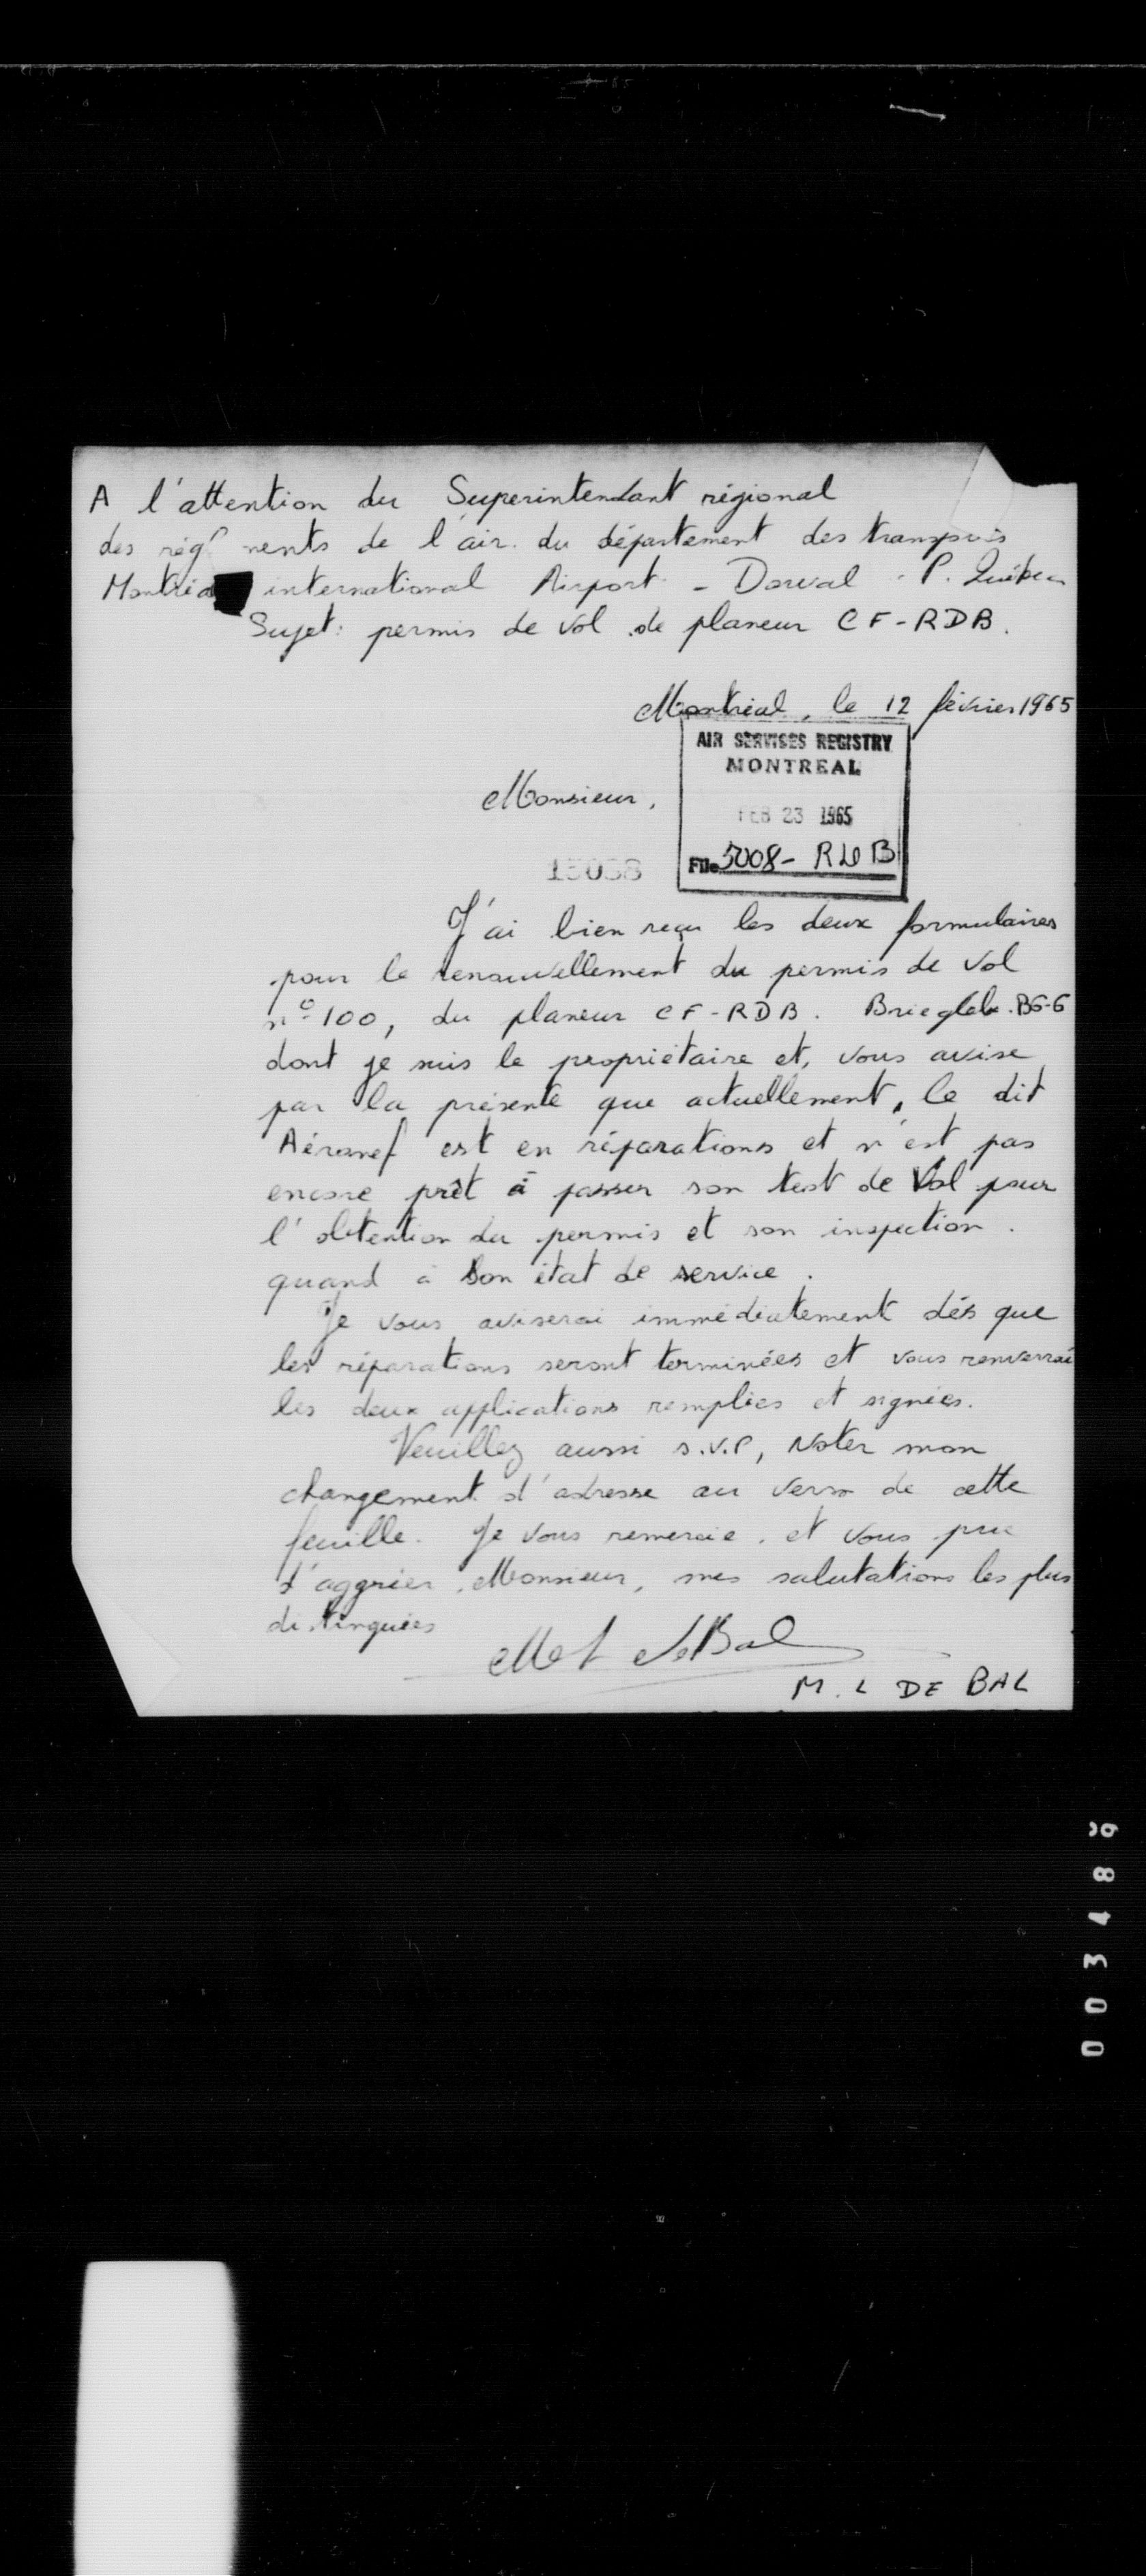 A l'attention du Superintendant régional
des règl ments de l'air. du département des transports
Montréal international Airport - Dorval - P. Québec
Sujet: permis de vol de planeur CF-RDB.
Montréal, le 12 février 1965
AIR SERVICES REGISTRY
MONTREAL
FEB 23 1965
File 5008- RDB
Monsieur,
15038
J'ai bien reçu les deux formulaires
pour le renouvellement du permis de vol
nº 100, du planeur CF-RDB. Briegleb. BG-6
dont je suis le propriétaire et, vous avise
par la présente que actuellement, le dit
Aéronef est en réparations et n'est pas
encore prêt à passer son test de Vol pour
l'obtention du permis et son inspection.
quand à son état de service.
Je vous aviserai immédiatement dès que
les réparations seront terminées et vous renverrai
les deux applications remplies et signées.
Veuillez aussi s.v.p, Noter mon
changement d'adresse au verso de cette
feuille. Je vous remercie. et vous prie
d'aggréer, Monsieur, mes salutations les plus
distinguées
DeBal
M. L DE BAL
003489